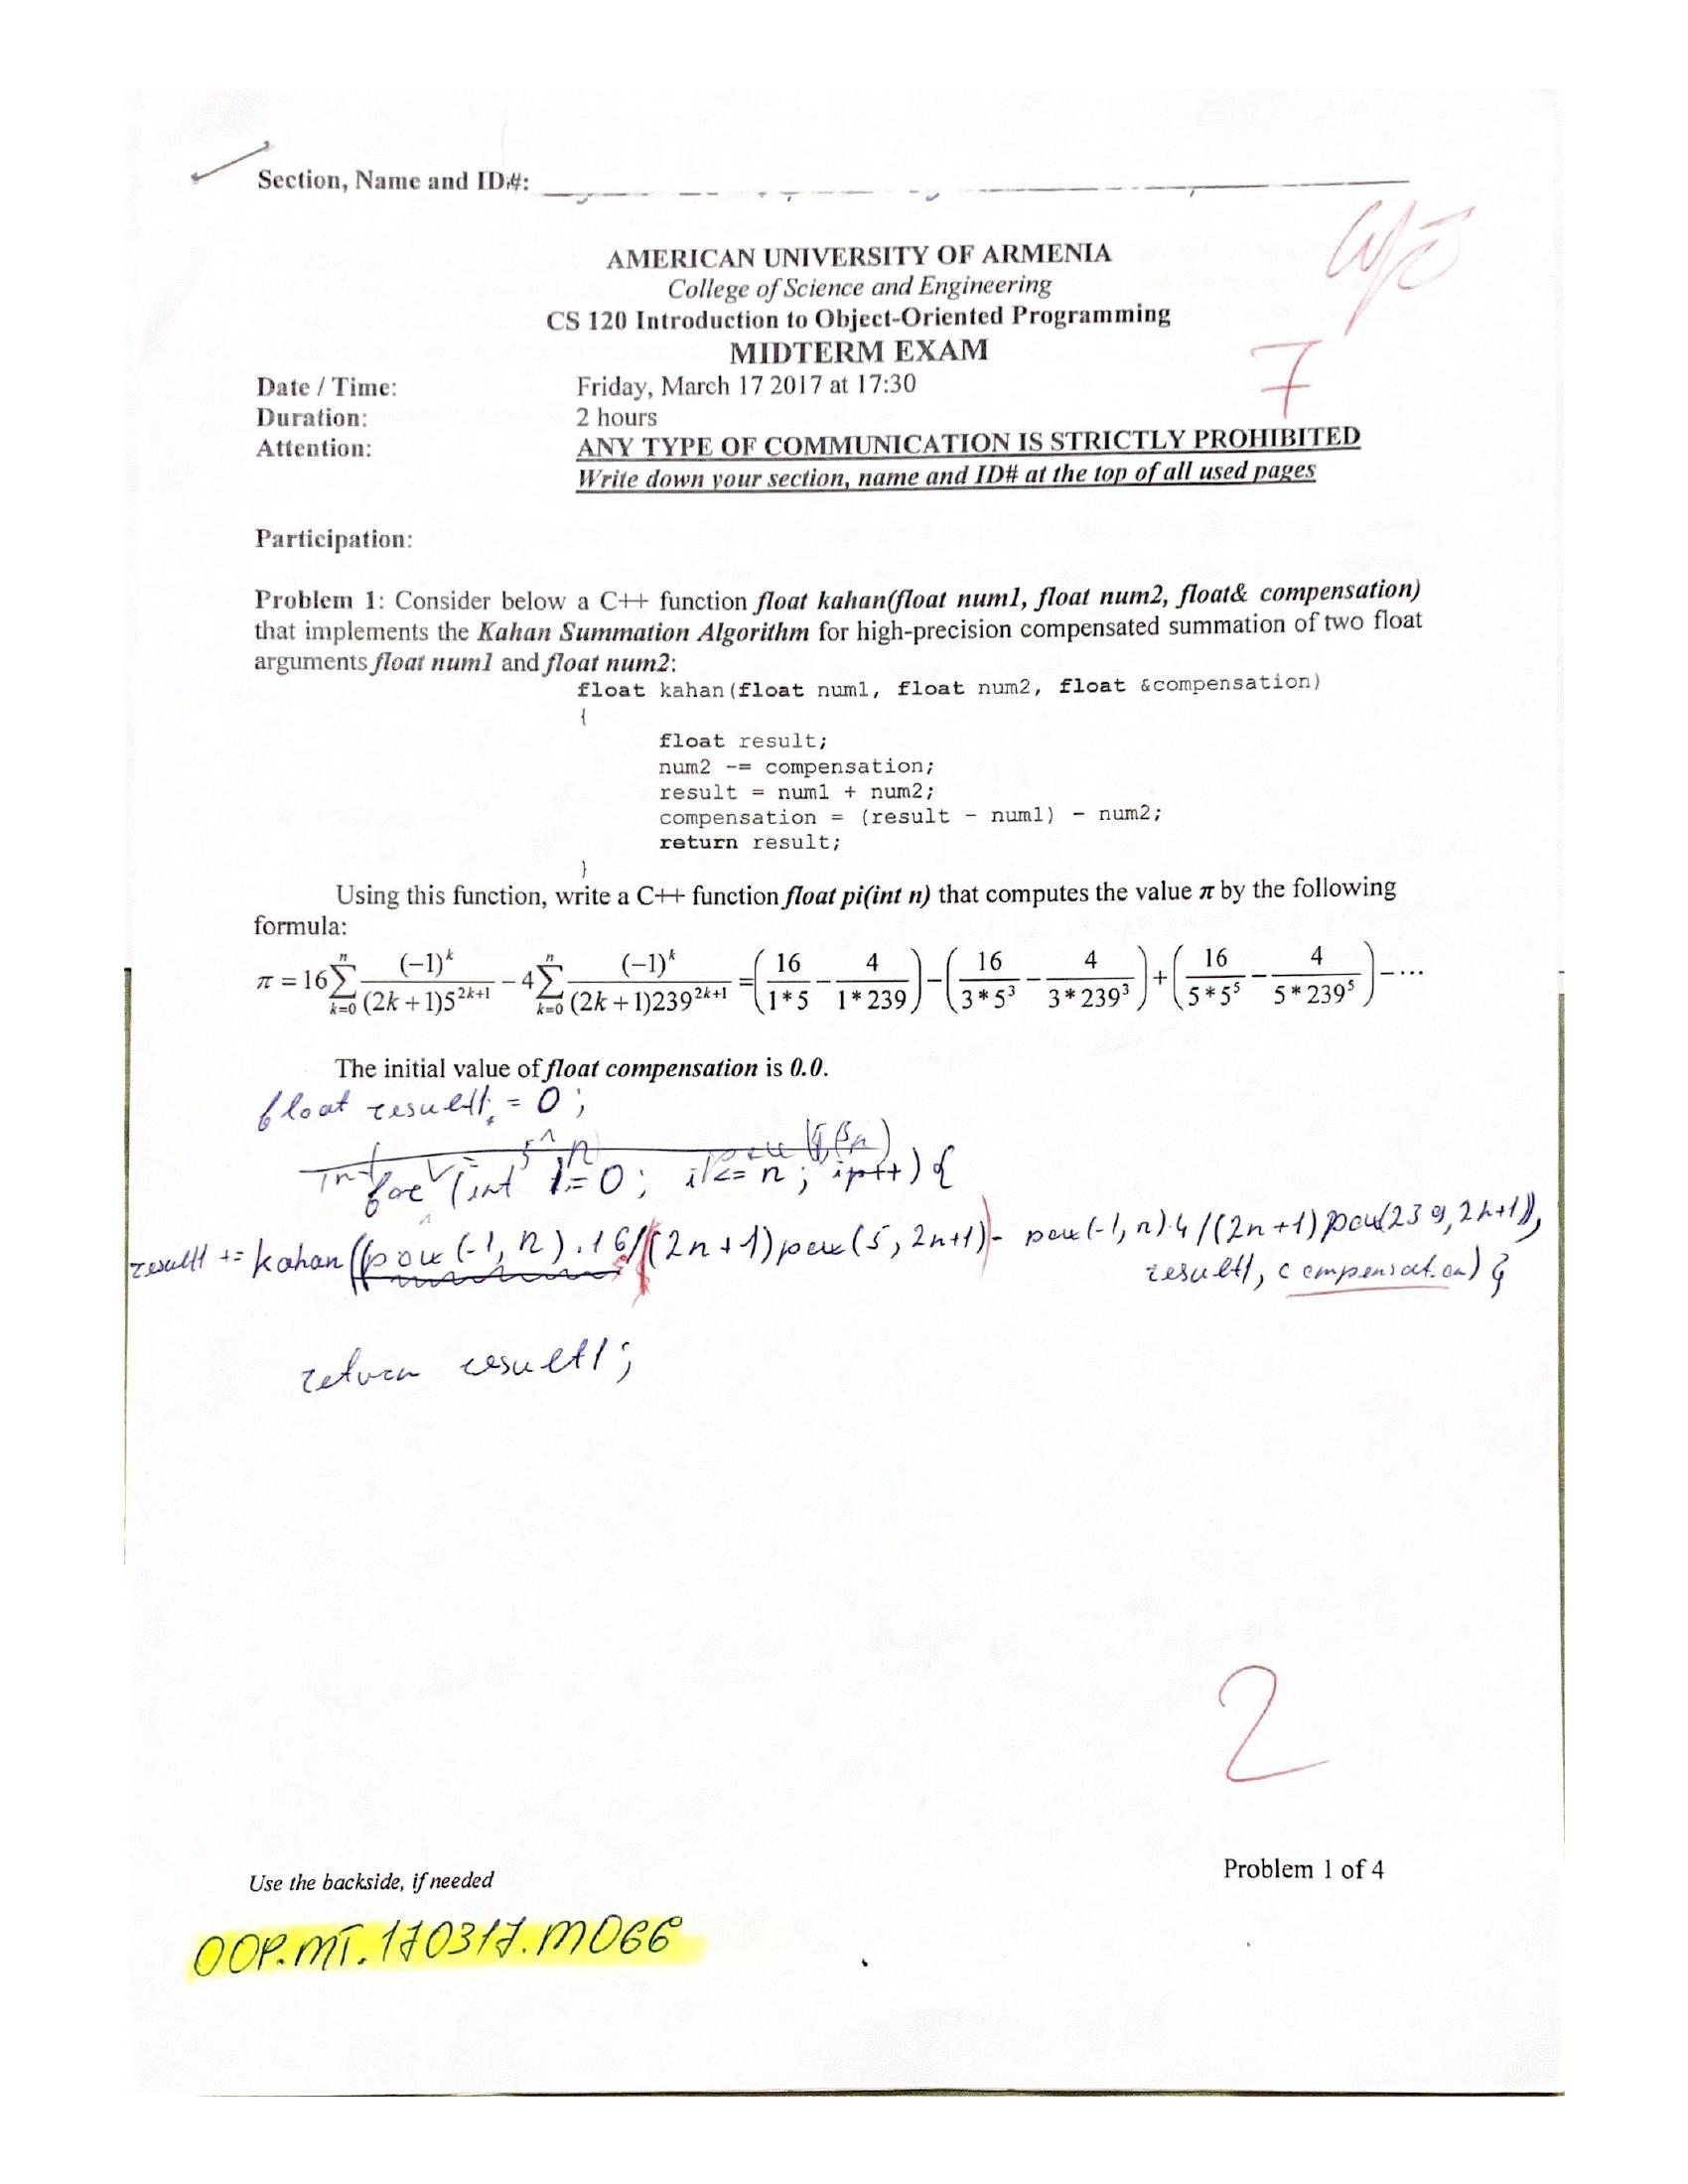 Section, Name and ID#:
AMERICAN UNIVERSITY OF ARMENIA
College of Science and Engineering
CS 120 Introduction to Object-Oriented Programming
MIDTERM EXAM
7
Date / Time: Friday, March 17 2017 at 17:30
Duration: 2 hours
Attention: ANY TYPE OF COMMUNICATION IS STRICTLY PROHIBITED
Write down your section, name and ID# at the top of all used pages
Participation:
Problem 1: Consider below a C++ function float kahan(float num1, float num2, float& compensation)
that implements the Kahan Summation Algorithm for high-precision compensated summation of two float
arguments float num1 and float num2:
float kahan(float num1, float num2, float &compensation)
{
float result;
num2 -= compensation;
result = num1 + num2;
compensation = (result - num1) - num2;
return result;
}
Using this function, write a C++ function float pi(int n) that computes the value π by the following
formula:
π = 16∑_{k=0}^{n} (-1)^k / ((2k+1)5^{2k+1}) - 4∑_{k=0}^{n} (-1)^k / ((2k+1)239^{2k+1}) = (16/(1*5) - 4/(1*239)) - (16/(3*5^3) - 4/(3*239^3)) + (16/(5*5^5) - 4/(5*239^5)) - ...
The initial value of float compensation is 0.0.
float result1 = 0;
for (int i=0; i<=n; i++) {
result1 += kahan((pow(-1, n).16/(2n+1)pow(5, 2n+1) - pow(-1, n).4/(2n+1)pow(239, 2n+1)),
result1, compensation) }
return result1;
2
Use the backside, if needed
Problem 1 of 4
OOP.MT.170317.M066